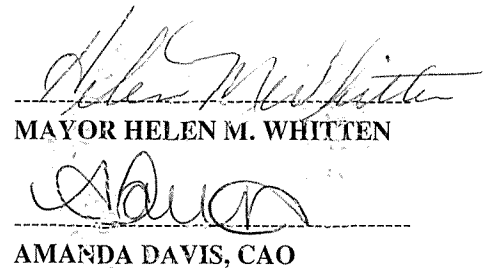 Helen M Whitten
MAYOR HELEN M. WHITTEN
ADavis
AMANDA DAVIS, CAO